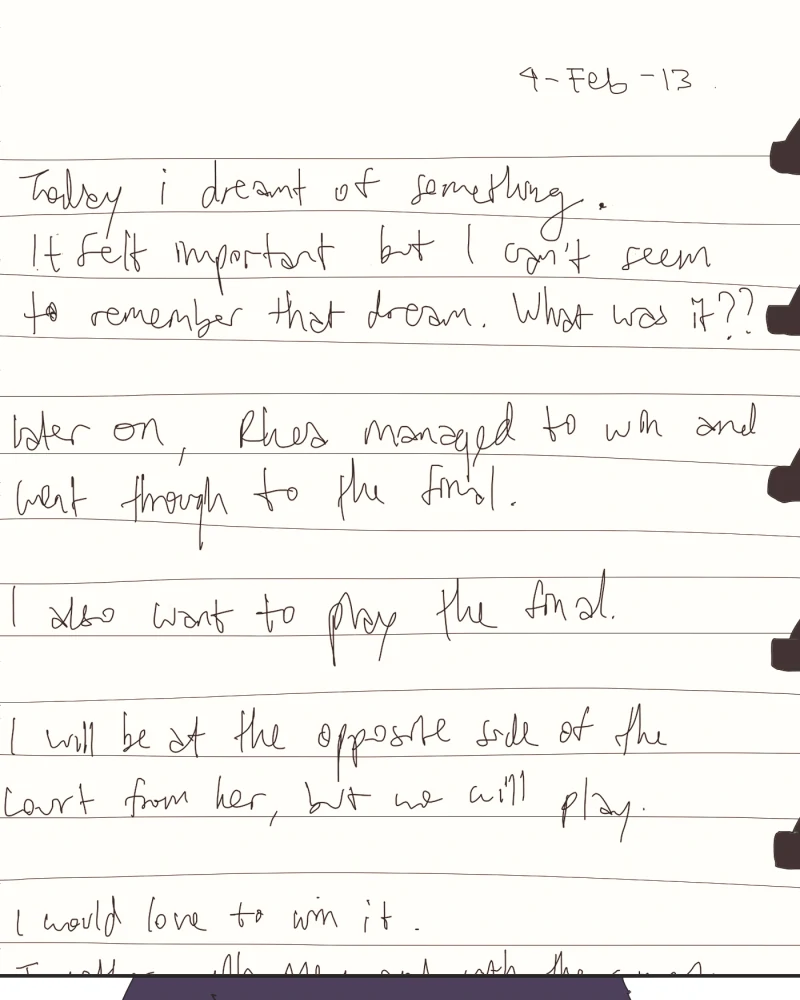 4-Feb-13
Today i dreamt of something.
It felt important but I can't seem
to remember that dream. What was it??
later on, Rhea managed to win and
went through to the final.
I also want to play the final.
I will be at the opposite side of the
court from her, but we will play.
I would love to win it.